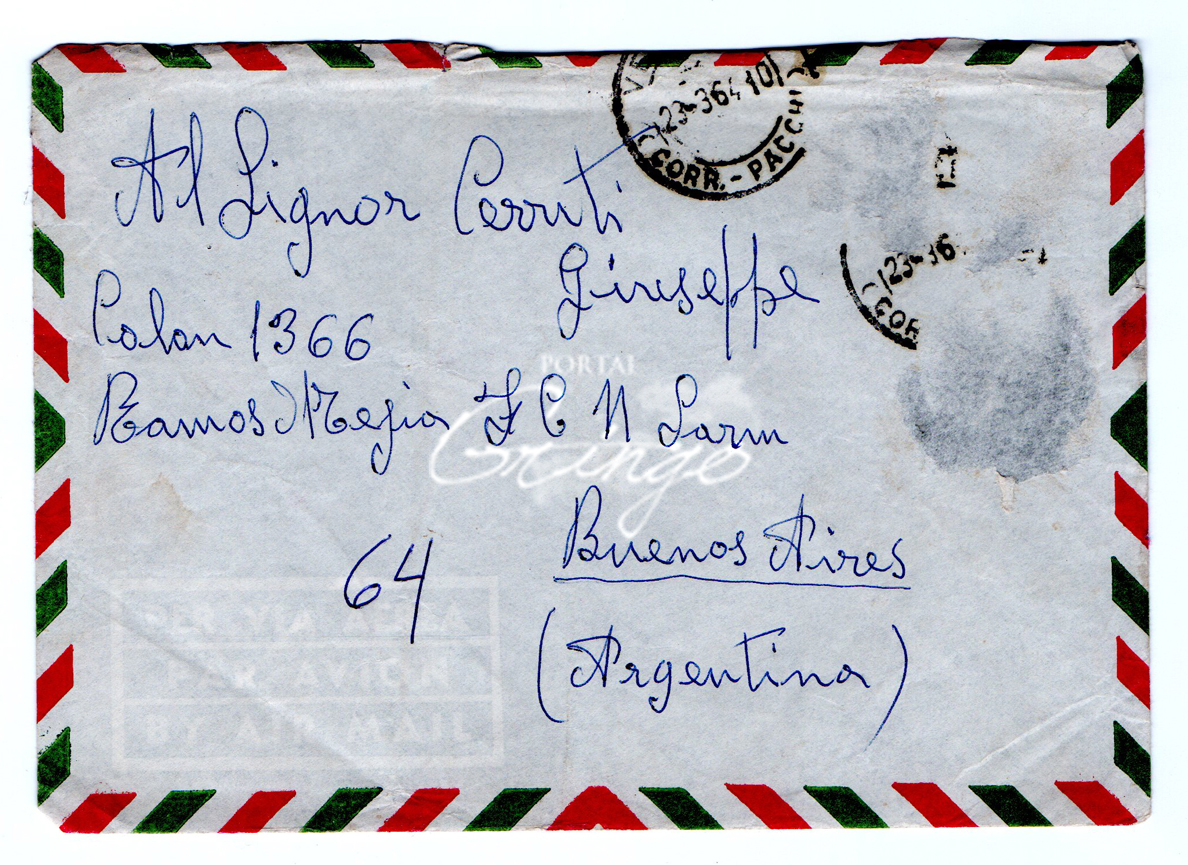 23-3 64 10
CORR.-PACCHI
23-3 6
COR
Al Signor Cerruti
Giuseppe
Colon 1366
Ramos Mejia F C N Sarm
PORTAL
Gringo
Buenos Aires
64
(Argentina)
PER VIA AEREA
PAR AVION
BY AIR MAIL